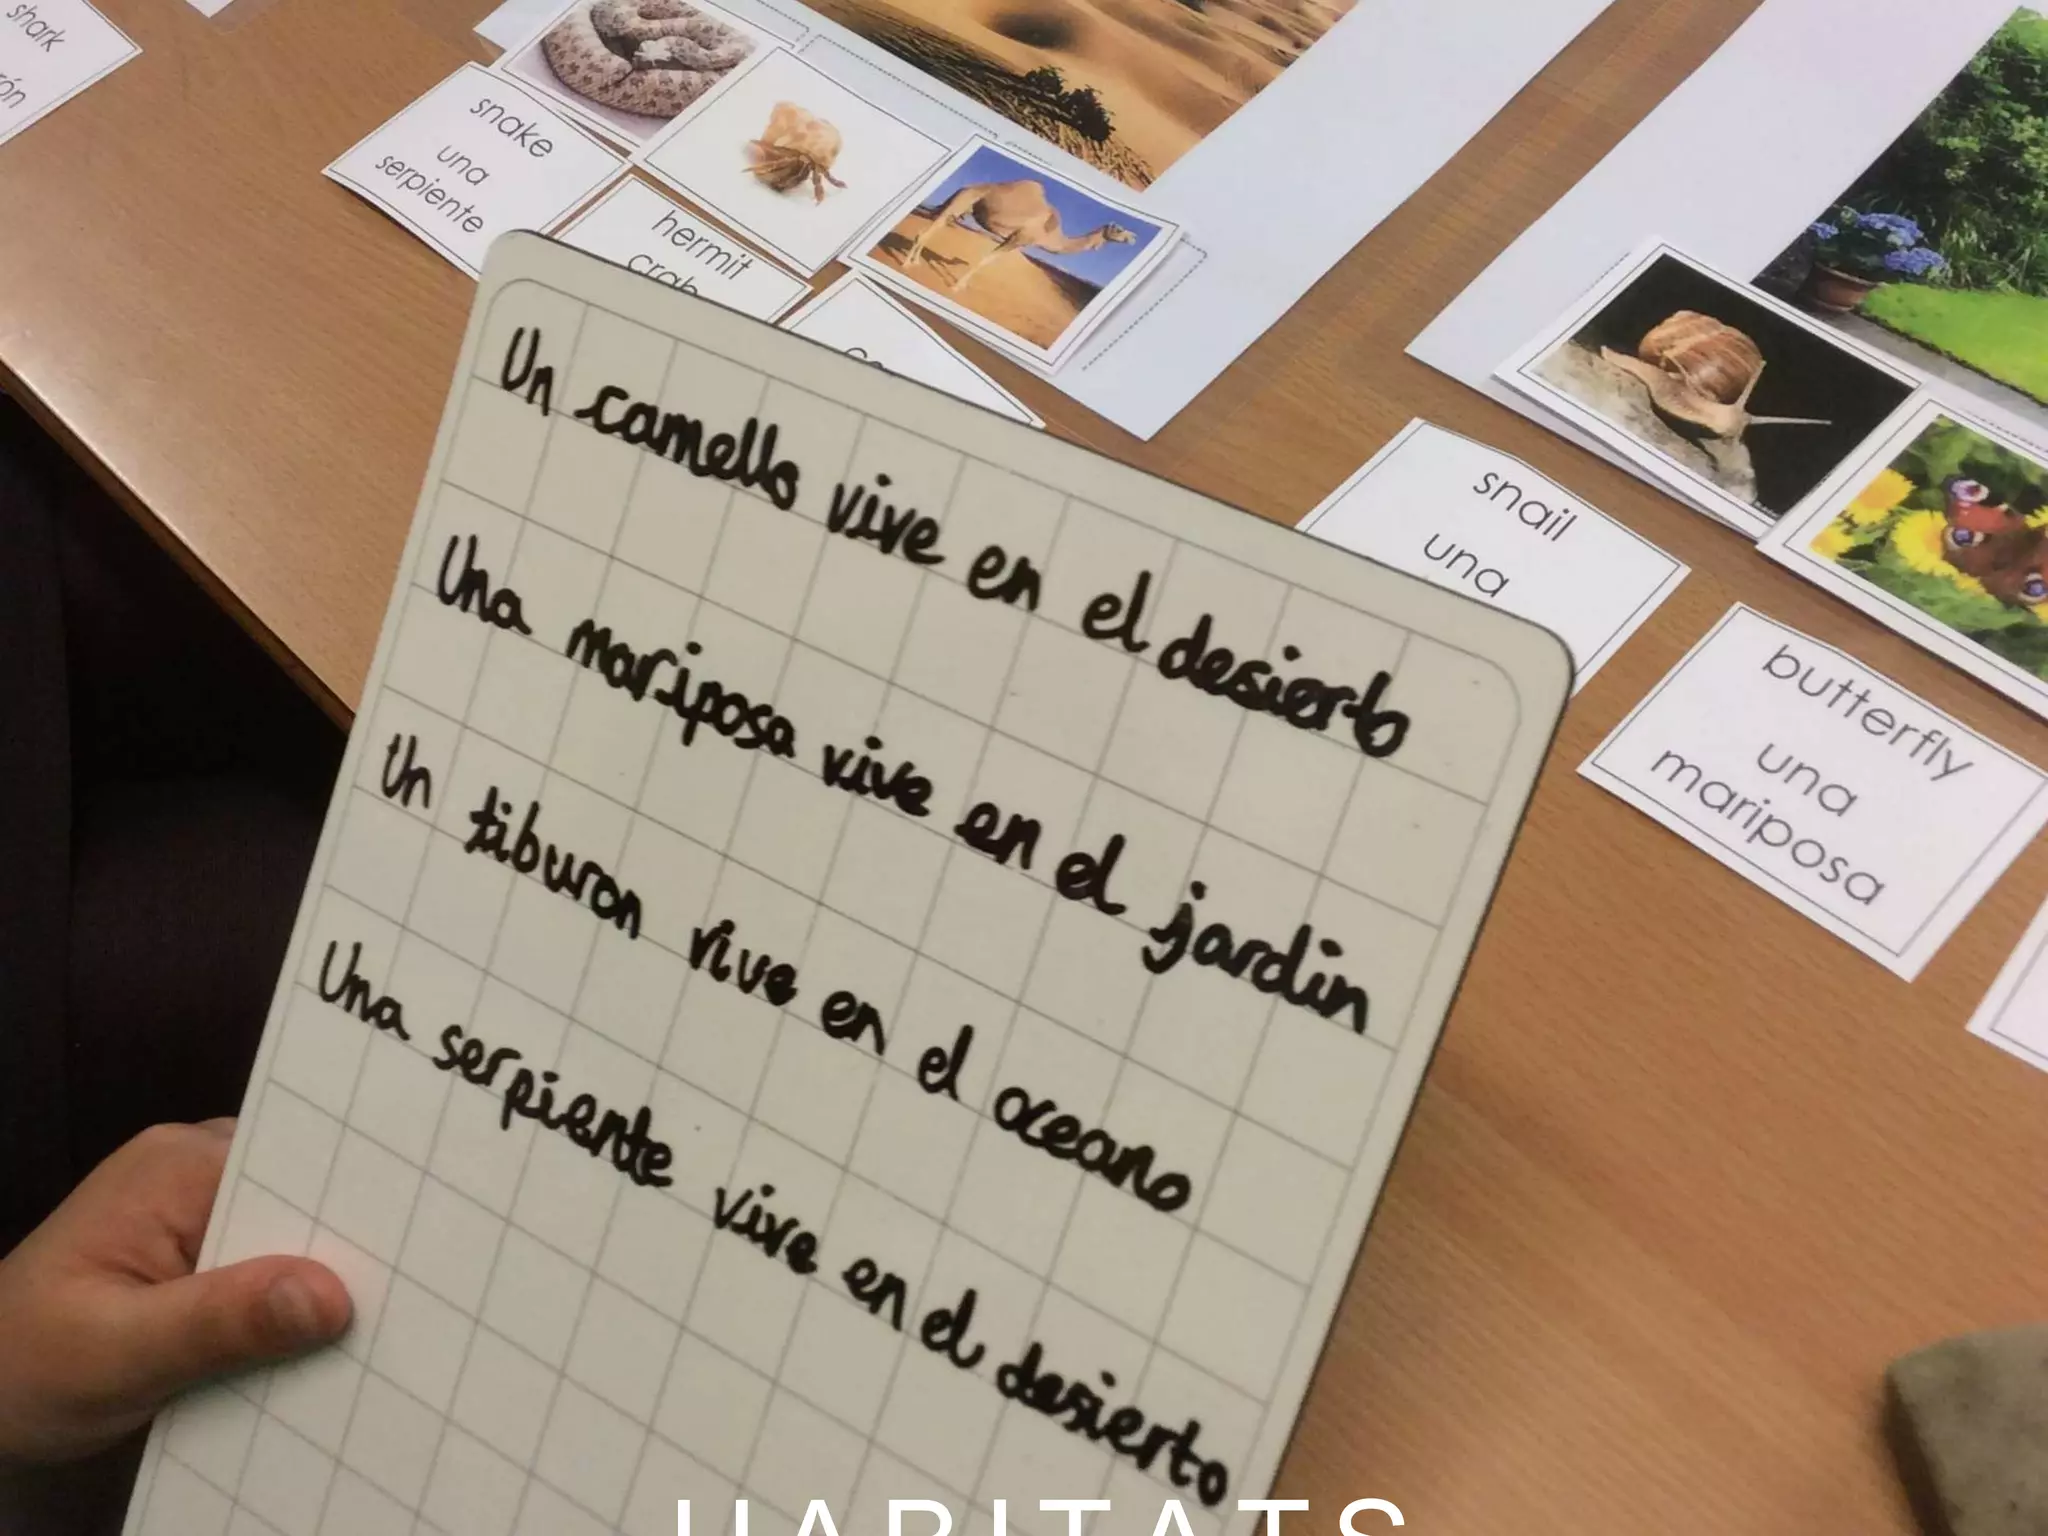 shark
snake
una
serpiente
hermit
crab
snail
una
butterfly
una
mariposa
Un camello vive en el desierto
Una mariposa vive en el jardin
Un tiburon vive en el oceano
Una serpiente vive en el desierto
HABITATS